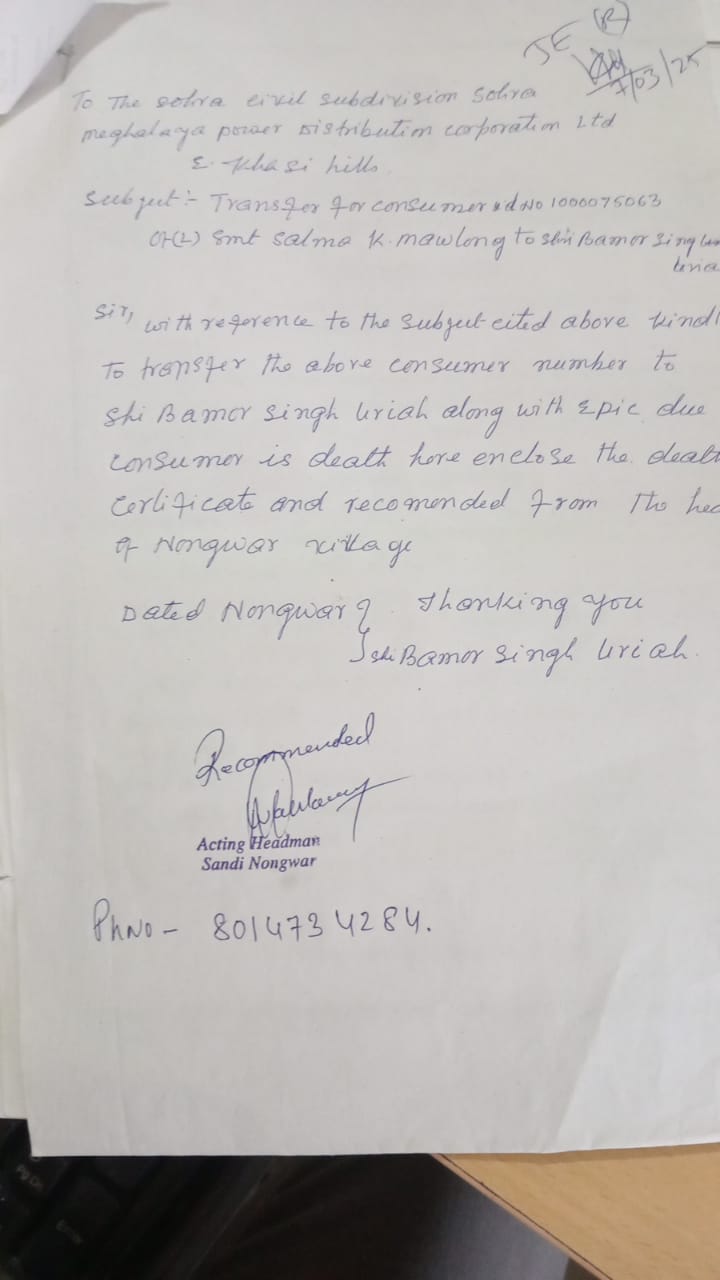 JE (R)
7/03/25
To The sohra civil subdivision Sohra
meghalaya power Distribution corporation Ltd
E. Khasi hills
Subject:- Transfer for consumer id No 1000075063
Of(L) Smt Salma K. mawlong to Shri Bamor Singh
uria
Sir, with reference to the Subject cited above kindl
To transfer the above consumer number to
Shi Bamor Singh Uriah along with Epic due
consumer is death here enclose the deat
Certificate and recomended from The hea
of Nongwar village
Dated Nongwar } Thanking you
Shi Bamor Singh Uriah.
Recommended
Acting Headman
Sandi Nongwar
PhNo - 8014734284.
Pg Dn